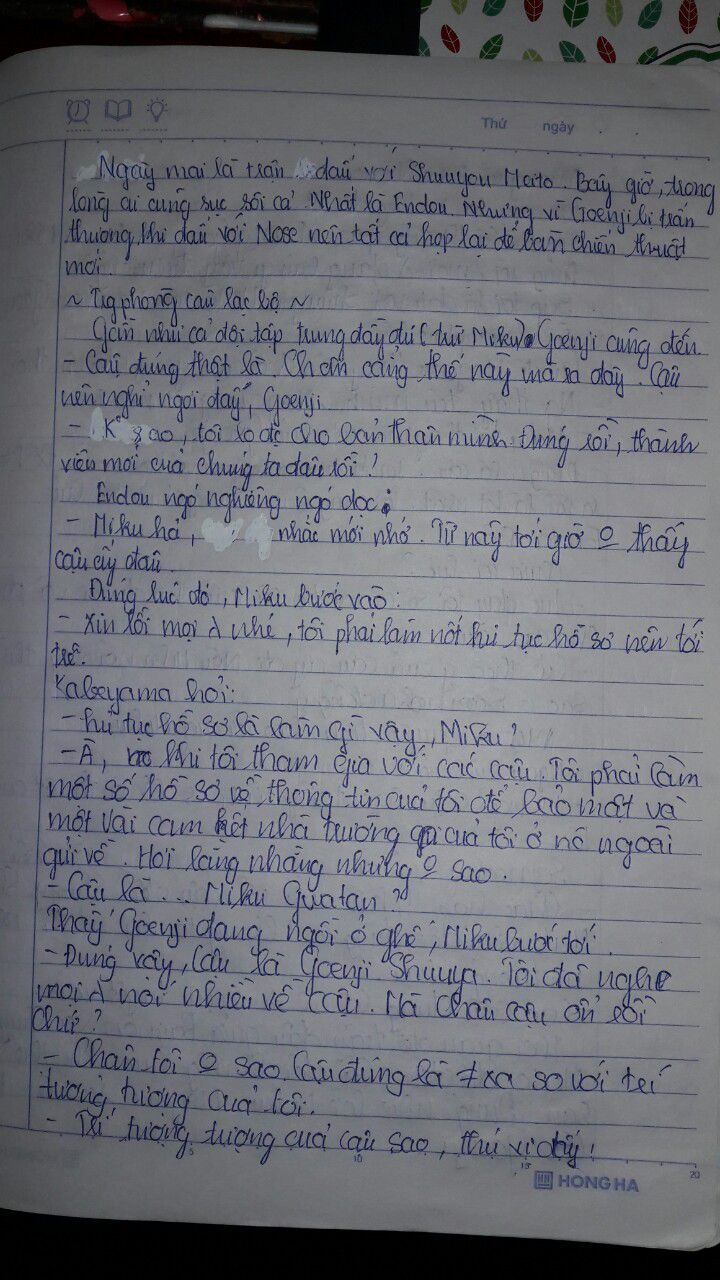 Thứ ngày
Ngày mai là trận đấu với Shuuyou Meito. Bây giờ, trong
lòng ai cũng sục sôi cả. Nhất là Endou. Nhưng vì Goenji bị trấn
thương khi đấu với Nose nên tất cả họp lại để bàn chiến thuật
mới.
~ Trg phòng câu lạc bộ ~
Gần như cả đội tập trung đầy đủ (trừ Miku). Goenji cũng đến
- Cậu đúng thật là. Chân cẳng thế này mà ra đây. Cậu
nên nghỉ ngơi đấy, Goenji.
- K sao, tôi lo đc cho bản thân mình. Đúng rồi, thành
viên mới của chúng ta đâu rồi?
Endou ngó nghiêng ngó dọc:
- Miku hả, nhắc mới nhớ. Từ nãy tới giờ o thấy
cậu ấy đâu.
Đúng lúc đó, Miku bước vào:
- Xin lỗi mọi λ nhé, tôi phải làm nốt thủ tục hồ sơ nên tới
trễ.
Kabeyama hỏi:
- Thủ tục hồ sơ là làm gì vậy, Miku?
- À, khi tôi tham gia với các cậu. Tôi phải làm
một số hồ sơ về thông tin của tôi để bảo mật và
một vài cam kết nhà trường của tôi ở nc ngoài
gửi về. Hơi lằng nhằng nhưng o sao.
- Cậu là... Miku Gwatan?
Thấy Goenji đang ngồi ở ghế, Miku bước tới.
- Đúng vậy, cậu là Goenji Shuuya. Tôi đã nghe
mọi λ nói nhiều về cậu. Mà chân cậu ổn rồi
chứ?
- Chân tôi o sao. Cậu đúng là ≠ xa so với trí
tưởng tượng của tôi.
- Trí tưởng tượng của cậu sao, thú vị đấy!
5 10 15 20
HONG HA